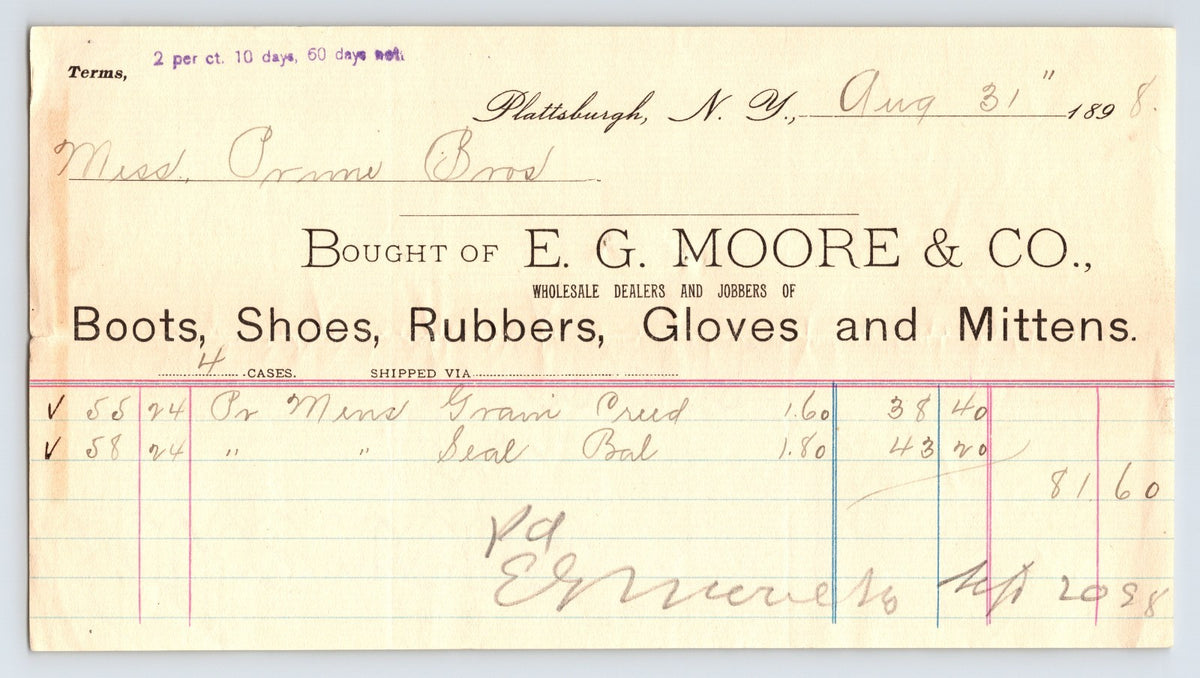 Terms, 2 per ct. 10 days, 60 days net.
Plattsburgh, N. Y., Aug 31" 1898.
Mess. Prime Bros
BOUGHT OF E. G. MOORE & CO.,
WHOLESALE DEALERS AND JOBBERS OF
Boots, Shoes, Rubbers, Gloves and Mittens.
4 CASES. SHIPPED VIA
✓ 55 24 Pr Mens Grain Creed 1.60 38 40
✓ 58 24 " " Seal Bal 1.80 43 20
81 60
Pd
E G Moore & Co Sept 20 98